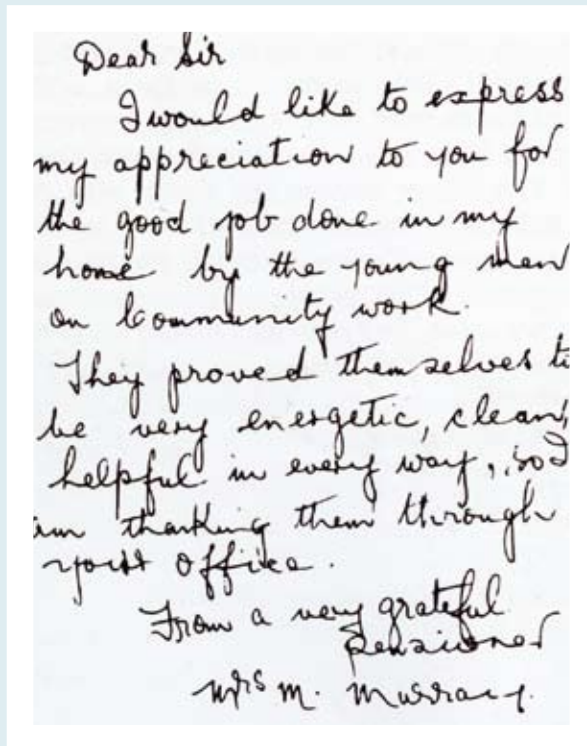 Dear Sir
I would like to express
my appreciation to you for
the good job done in my
home by the young men
on Community work.
They proved themselves to
be very energetic, clean,
helpful in every way, so I
am thanking them through
your office.
From a very grateful
Pensioner
Mrs M. Murray.